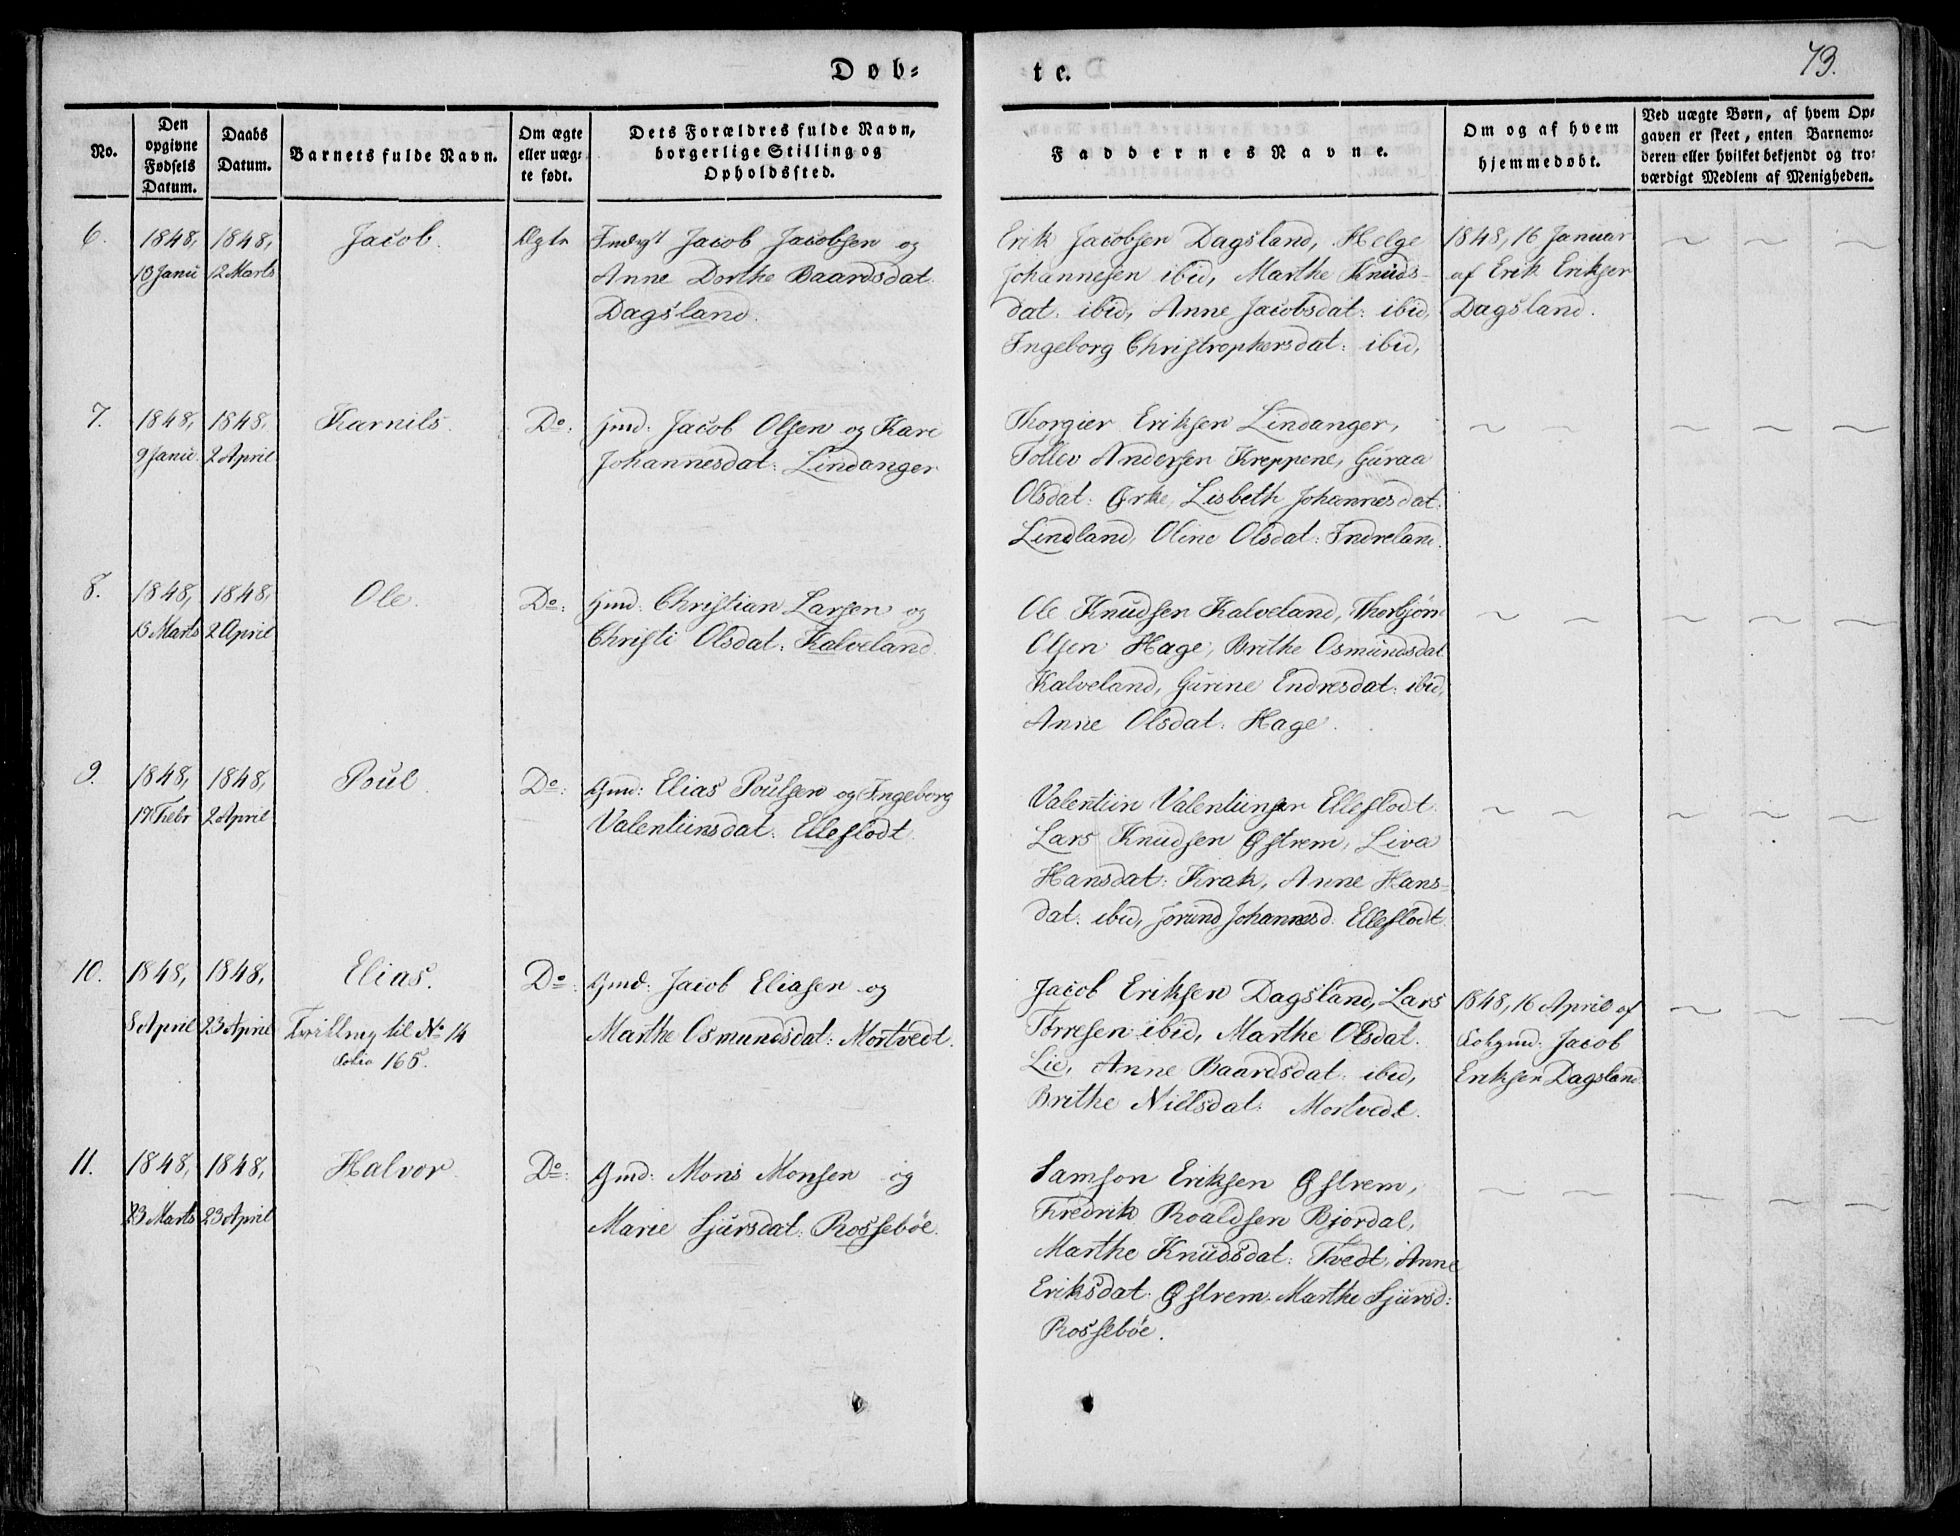 73.
Døb=
te.
No.
Den opgivne Fødsels Datum.
Daabs Datum.
Barnets fulde Navn.
Om ægte eller uæg- te født.
Dets Forældres fulde Navn, borgerlige Stilling og Opholdssted.
Faddernes Navne.
Om og af hvem hjemmedøbt.
Ved uægte Børn, af hvem Op= gaven er skeet, enten Barnemo= deren eller hvilket bekjendt og tro= værdigt Medlem af Menigheden.
6.
1848,
1848,
12 Marts
Jacob.
Ægte
Jacob Jacobsen og
Anne Dorthe Baardsdat.
Dagsland.
Erik Jacobsen Dagsland, Helge
Johannesen ibid, Marthe Knuds-
dat: ibid, Anne Jacobsdat: ibid,
Ingeborg Christophersdat: ibid,
1848, 16 Januar
af Erik Eriksen
Dagsland.
7.
1848,
9 Janu.
1848,
2 April
Karnils.
Do:
Gmd: Jacob Olsen og Kari
Johannesdat: Lindanger
Thorgier Eriksen Lindanger,
Tollev Andersen Kreppene, Guraa
Olsdat: Ørke, Lisbeth Johannesdat:
Lindland, Oline Olsdat: Indreland.
8.
1848,
13 Marts
1848,
2 April
Ole.
Do:
Gmd: Christian Larsen og
Christi Olsdat: Kalveland.
Ole Knudsen Kalveland, Thorbjørn
Olsen Hage, Brithe Osmundsdat
Kalveland, Gurine Endresdat: ibid,
Anne Olsdat: Hage.
9.
1848,
17 Febr
1848,
2 April
Poul.
Do:
Gmd: Elias Poulsen og Ingeborg
Valentiinsdat: Elleflodt
Valentiin Valentiinsen Elleflodt.
Lars Knudsen Østrem, Liva
Hansdat: Krak, Anne Hans-
dat: ibid, Jorund Johannesd. Elleflodt.
10.
1848,
8 April
1848,
23 April
Elias.
Tvilling til No 14
Folio 165.
Do:
Gmd: Jacob Eliasen og
Marthe Osmundsdat: Mortvedt.
Jacob Eriksen Dagsland, Lars
Torresen ibid, Marthe Olsdat.
Lie, Anne Baardsdat: ibid,
Brithe Nielsdat: Mortvedt.
1848, 16 April af
Jacob
Eriksen Dagsland
11.
1848,
23 Marts
1848,
23 April
Halvor.
Do:
Gmd: Mons Monsen og
Marie Sjursdat: Rossebøe.
Samson Eriksen Østrem,
Fredrik Roaldsen Bjordal,
Marthe Knudsdat: Tvedt, Anne
Eriksdat: Østrem, Marthe Sjursd:
Rossebøe.